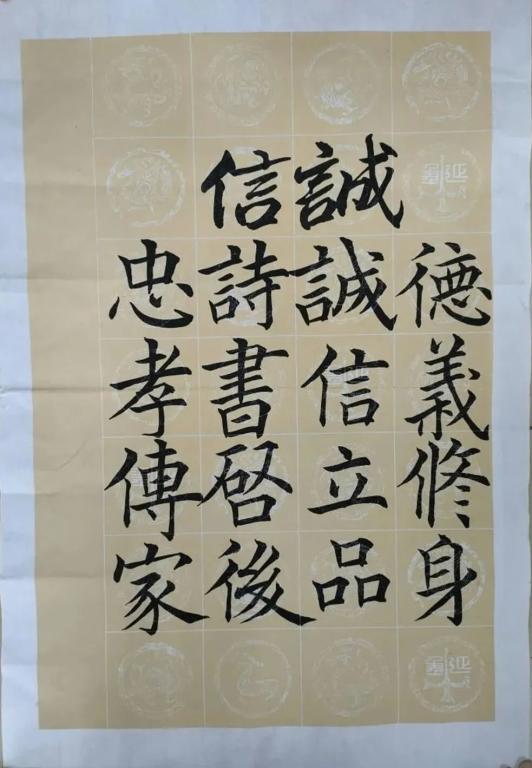 誠信
德義修身
誠信立品
詩書啓後
忠孝傳家